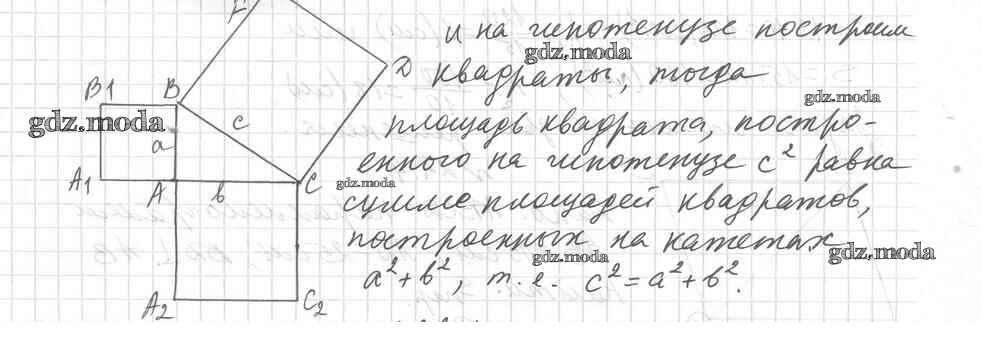 E
и на гипотенузе построим
gdz.moda
D
квадраты, тогда
B1 B
gdz.moda
gdz.moda
c
площадь квадрата, постро-
a
енного на гипотенузе c² равна
A1 A b C
gdz.moda
сумме площадей квадратов,
построенных на катетах
gdz.moda
gdz.moda
a² + b², т. е. c² = a² + b².
A2 C2